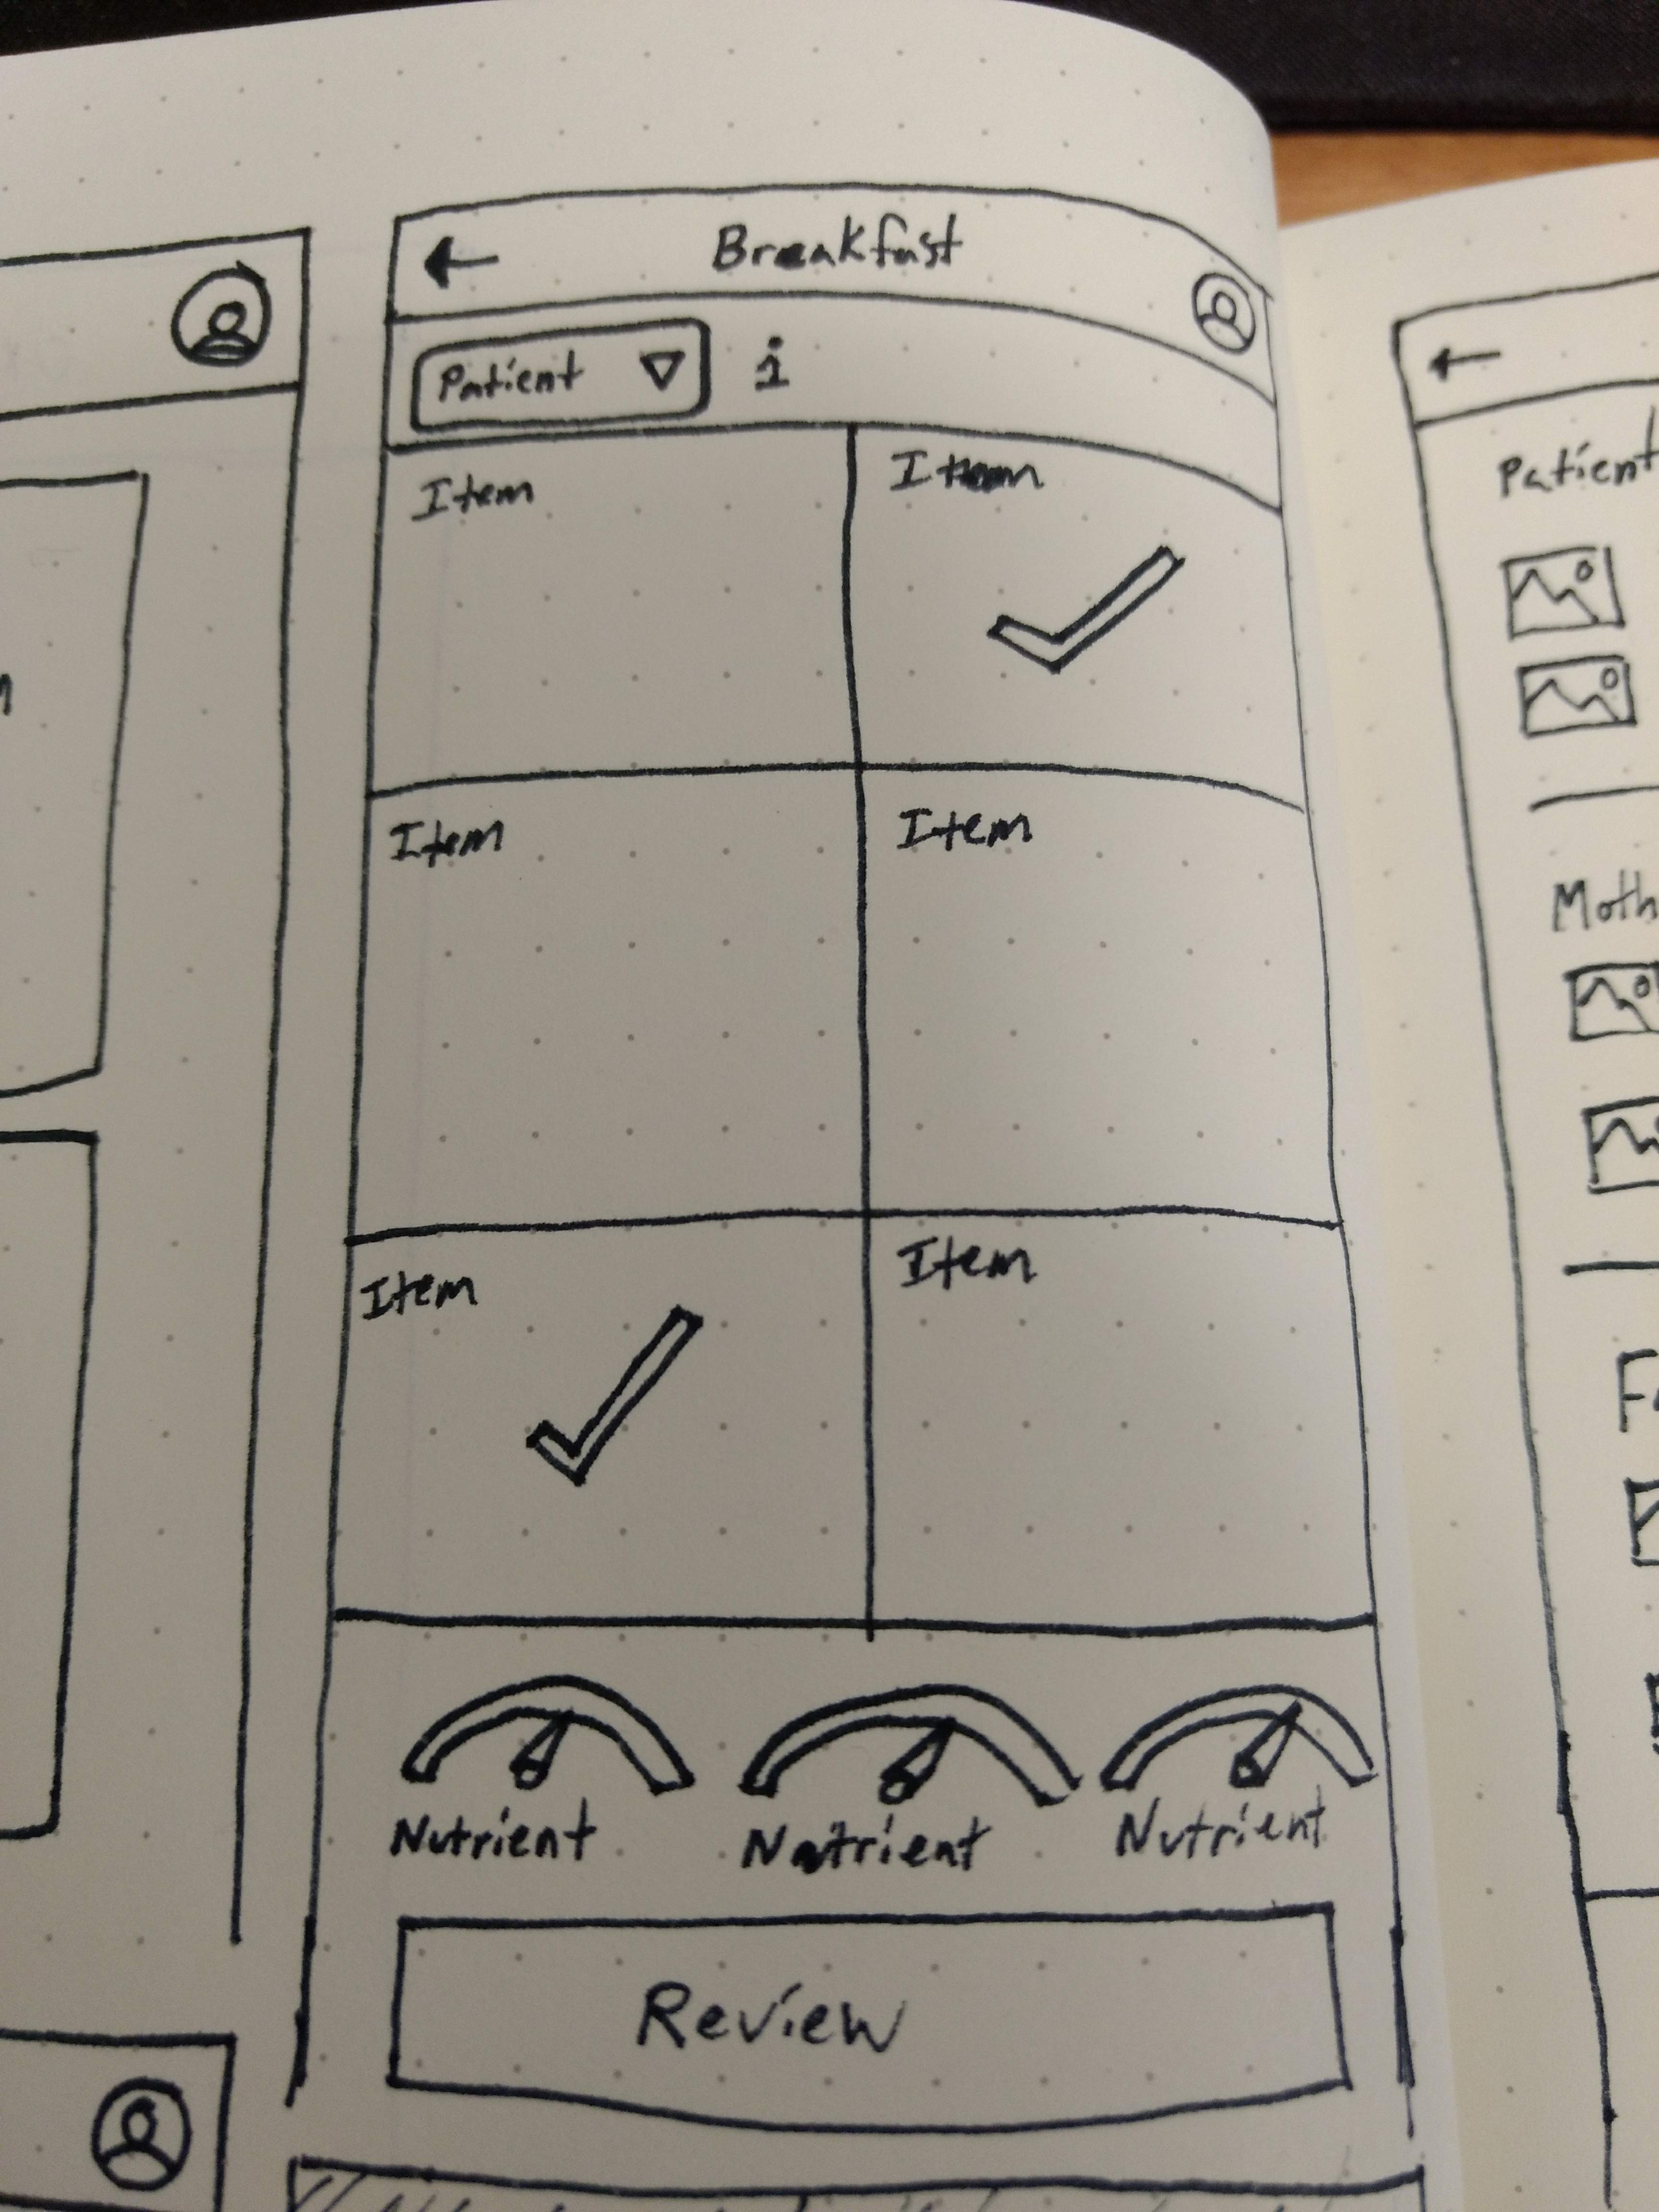 Breakfast
Patient i
Item Item
Item Item
Item Item
Nutrient Nutrient Nutrient
Review
Patient
Moth